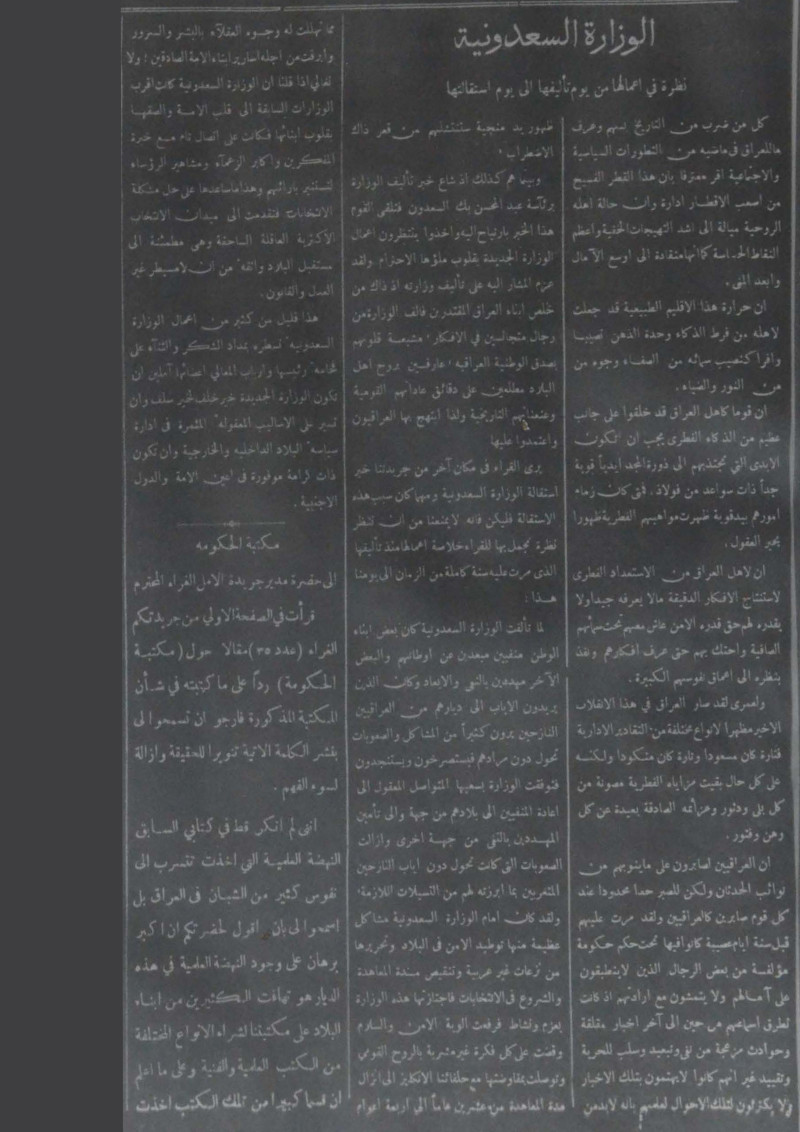 الوزارة السعدونية
نظرة في اعمالها من يوم تأليفها الى يوم استقالتها
كل من ضرب من التاريخ بسهم وعرف
ماللعراق في ماضيه من التطورات السياسية
والاجتماعية اقر معترفا بان هذا القطر الفسيح
من اصعب الاقطار ادارة وان حالة اهله
الروحية ميالة الى اشد التهيجات الخفية واعظم
النقاط الحساسة كما انها منقادة الى اوسع الآمال
وابعد المنى .
ان حرارة هذا الاقليم الطبيعية قد جعلت
لاهله من فرط الذكاء وحدة الذهن نصيبا
وافرا كنصيب سمائه من الصفاء وجوه من
من النور والضياء .
ان قوما كاهل العراق قد خلقوا على جانب
عظيم من الذكاء الفطرى يجب ان تكون
الايدى التي تجتذبهم الى ذروة المجد ايديا قوية
جداً ذات سواعد من فولاذ . فتى كان زمام
امورهم بيد قوية ظهرت مواهبهم الفطرية ظهورا
يحير العقول .
ان لاهل العراق من الاستعداد الفطرى
لاستنتاج الافكار الدقيقة مالا يعرفه جيدا ولا
يقدره لهم حق قدره الامن عاش معهم تحت سمائهم
الصافية واحتك بهم حق عرف افكارهم ونفذ
بنظره الى اعماق نفوسهم الكبيرة .
ولعمرى لقد سار العراق في هذا الانقلاب
الاخير مظهرا لانواع مختلفة من التقادير الادارية
فتارة كان مسعودا وتارة كان منكودا ولكنه
على كل حال بقيت مزاياه الفطرية مصونة من
كل بلى ودثور وعزائمه الصادقة بعيدة عن كل
وهن وفتور .
ان العراقيين لصابرون على ماينوبهم من
نوائب الحدثان ولكن للصبر حدا محدودا عند
كل قوم صابرين كالعراقيين ولقد مرت عليهم
قبل سنة ايام عصيبة كانوا فيها تحت حكم حكومة
مؤلفة من بعض الرجال الذين لاينطبقون
على آمالهم ولا يتمشون مع ارادتهم اذ كانت
تطرق اسماعهم من حين الى آخر اخبار مقلقة
وحوادث مزعجة من نفى وتبعيد وسلب للحرية
وتقييد غير انهم كانوا لايهتمون بتلك الاخبار
ولا يكترثون لتلك الاحوال لعلمهم بانه لابد من
ظهور يد منجية ستنتشلهم من قعر ذاك
الاضطراب .
وبينما هم كذلك اذ شاع خبر تأليف الوزارة
برئاسة عبد المحسن بك السعدون فتلقى القوم
هذا الخبر بارتياح اليه واخذوا ينتظرون اعمال
الوزارة الجديدة بقلوب ملؤها الاحترام . ولقد
عزم المشار اليه على تأليف وزارته اذ ذاك من
خلص ابناء العراق المقتدرين فألف الوزارة من
رجال متجانسين في الافكار مشبعة قلوبهم
بصدق الوطنية العراقية عارفين بروح اهل
البلاد مطلعين على دقائق عاداتهم القومية
وعنعناتهم التاريخية ولذا ابتهج بها العراقيون
واعتمدوا عليها
يرى القراء في مكان آخر من جريدتنا خبر
استقالة الوزارة السعدونية ومهما كان سبب هذه
الاستقالة فليكن فانه لايمنعنا من ان ننظر
نظرة نجمل بها للقراء خلاصة اعمالها منذ تأليفها
الذى مرت عليه سنة كاملة من الزمان الى يومنا
هذا :
لما تألفت الوزارة السعدونية كان بعض ابناء
الوطن منفيين مبعدين عن اوطانهم والبعض
الآخر مهددين بالنفي والابعاد وكان الذين
يريدون الاياب الى ديارهم من العراقيين
النازحين يرون كثيراً من المشاكل والصعوبات
تحول دون مرادهم فيستصرخون ويستنجدون
فتوفقت الوزارة بسعيها المتواصل المعقول الى
اعادة المنفيين الى بلادهم من جهة والى تأمين
المهددين بالنفى من جهة اخرى وازالت
الصعوبات التى كانت تحول دون اياب النازحين
المتغربين بما ابرزته لهم من التسهيلات اللازمة .
ولقد كان امام الوزارة السعدونية مشاكل
عظيمة منها توطيد الامن فى البلاد وتحريرها
من نزعات غير عربية وتنقيص مدة المعاهدة
والشروع فى الانتخابات فاجتازتها هذه الوزارة
بعزم ونشاط فرفعت الوية الامن والسلام
وقضت على كل فكرة غير مشربة بالروح القومي
وتوصلت بمفاوضتها مع حلفائنا الانكليز الى انزال
مدة المعاهدة من عشرين عاماً الى اربعة اعوام
مما تهللت له وجوه العقلاء بالبشر والسرور
وابرقت من اجله اسارير ابناء الامة الصادقين ؛ ولا
نغالي اذا قلنا ان الوزارة السعدونية كانت اقرب
الوزارات السابقة الى قلب الامة والصقها
بقلوب ابنائها فكانت على اتصال تام مع خيرة
المفكرين واكابر الزعماء ومشاهير الرؤساء
لتستنير بارائهم وهذا ما ساعدها على حل مشكلة
الانتخابات فتقدمت الى ميدان الانتخاب
الاكثرية العاقلة الساحقة وهي مطمئنة الى
مستقبل البلاد واثقة من ان لامسيطر غير
العدل والقانون .
هذا قليل من كثير من اعمال الوزارة
السعدونية نسطره بمداد الشكر والثناء على
فخامة رئيسها وارباب المعالي اعضائها آملين ان
تكون الوزارة الجديدة خير خلف لخير سلف وان
تسير على الاساليب المعقولة المثمرة فى ادارة
سياسة البلاد الداخلية والخارجية وان تكون
ذات كرامة موفورة فى اعين الامة والدول
الاجنبية .
مكتبة الحكومه
الى حضرة مدير جريدة الامل الغراء المحترم
قرأت في الصفحة الاولى من جريدتكم
الغراء (عدد ٣٥) مقالا حول (مكتبة
الحكومة) رداً على ما كتبته في شأن
المكتبة المذكورة فارجو ان تسمحوا لى
بنشر الكلمة الاتية تنويرا للحقيقة وازالة
لسوء الفهم .
اننى لم انكر قط في كتابي السابق
النهضة العلمية التي اخذت تتسرب الى
نفوس كثير من الشبان فى العراق بل
اسمحوا لى بان اقول لحضرتكم ان اكبر
برهان على وجود النهضة العلمية في هذه
الديار هو تهافت الكثيرين من ابناء
البلاد على مكتبتنا لشراء الانواع المختلفة
من الكتب العلمية والفنية وعلى ما اعلم
ان قسما كبيرا من تلك الكتب اخذت